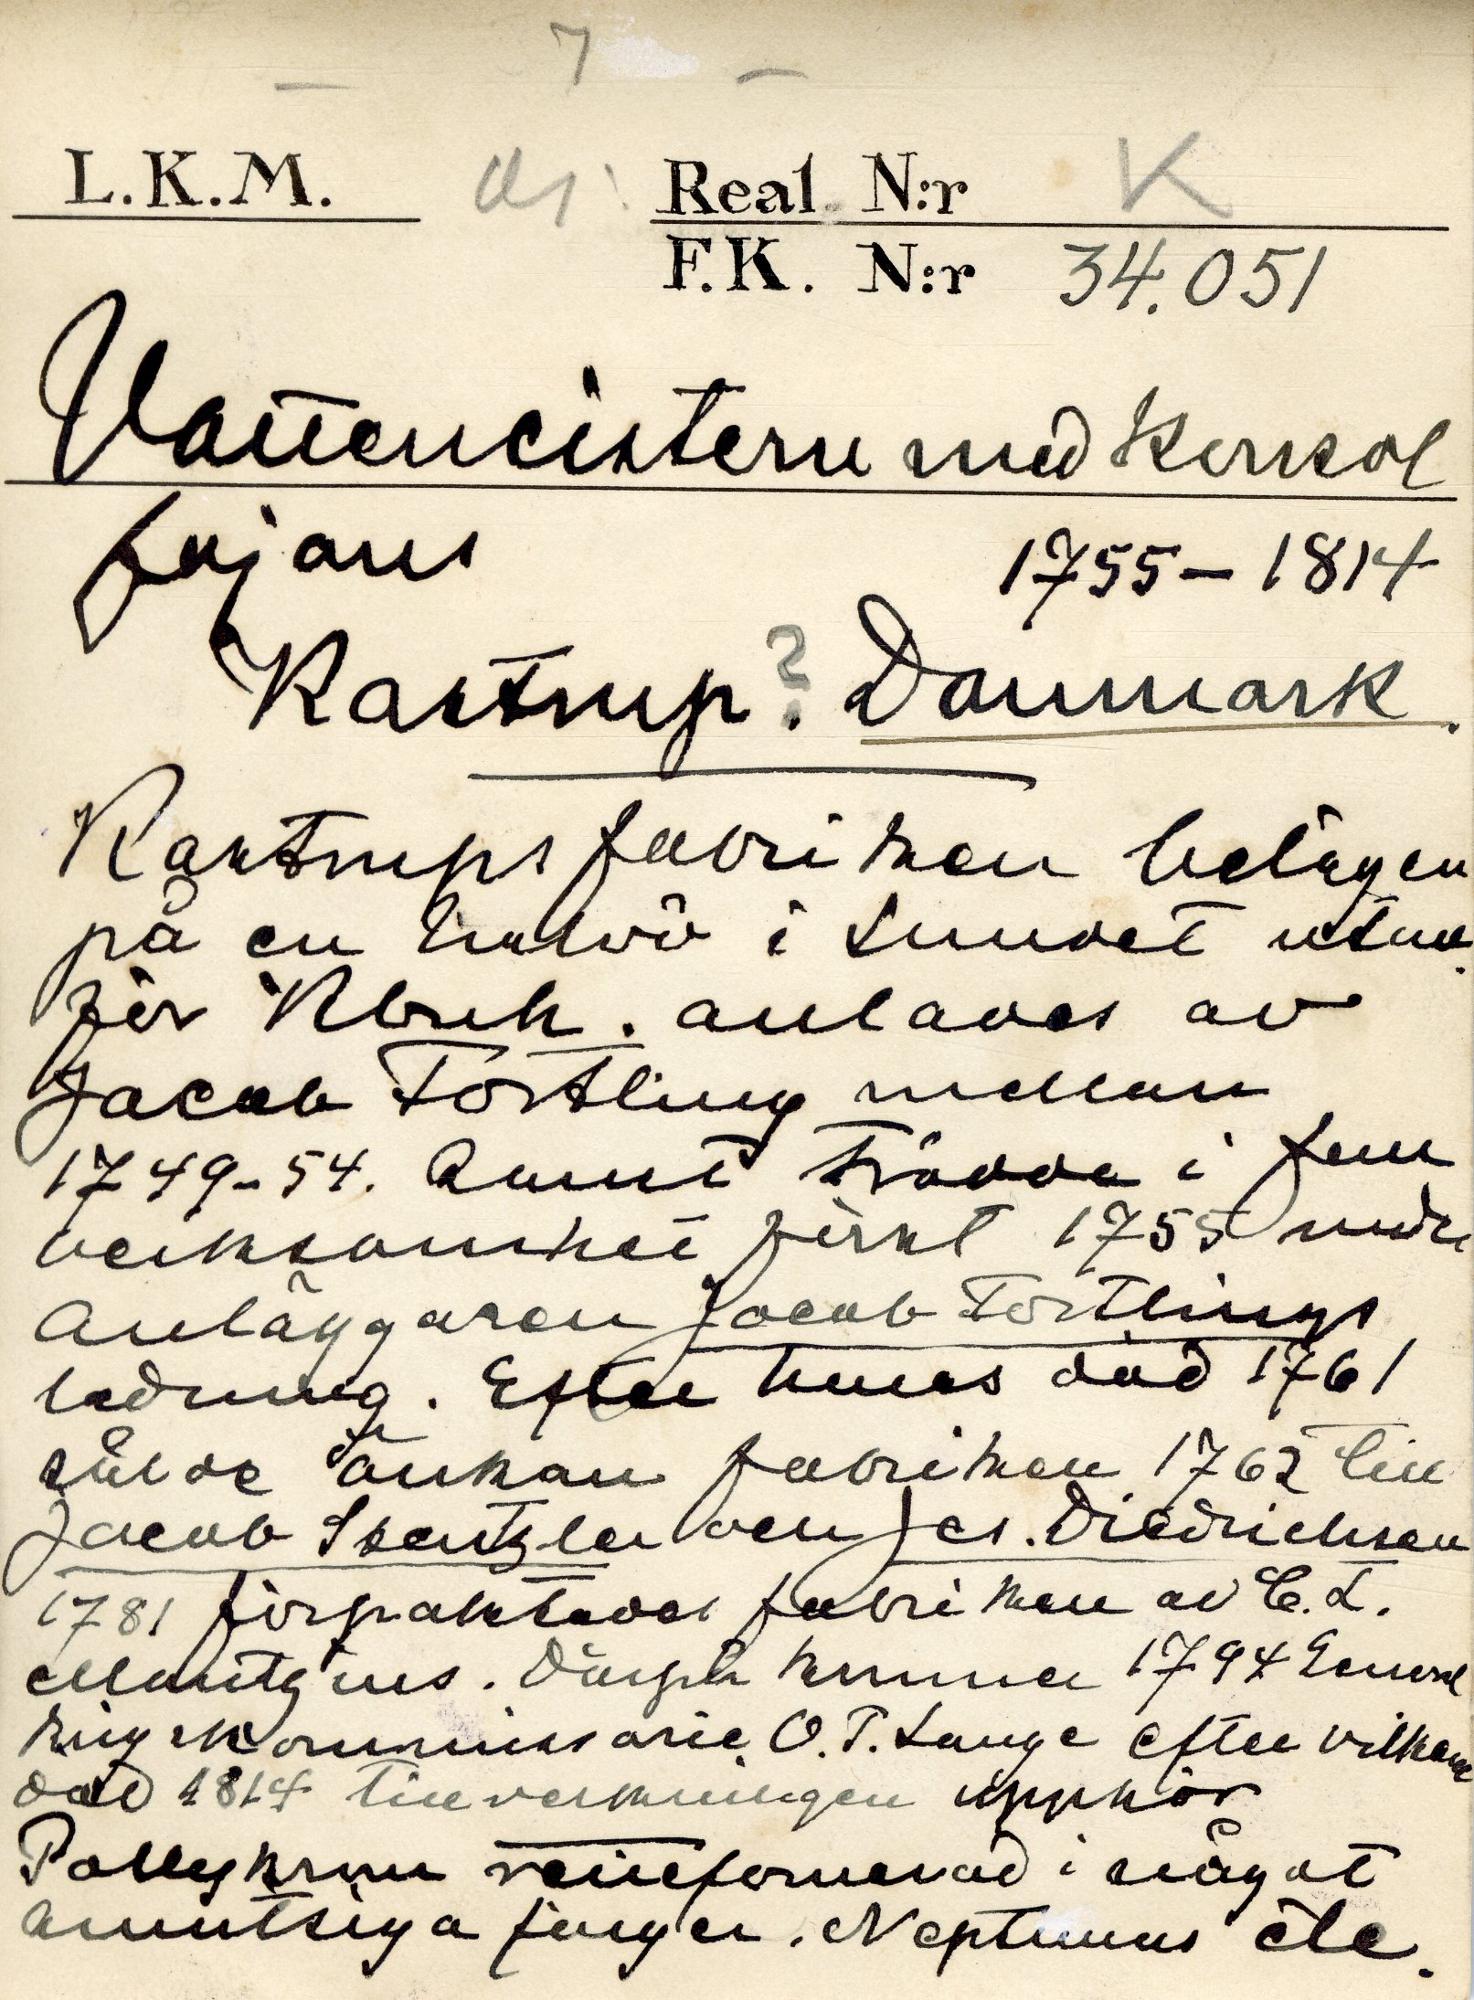 7
L.K.M. Real. N:r K
F.K. N:r 34.051
Vattencistern med Konsol
fajans 1755–1814
Kastrup? Danmark.
Kastrups fabriken belägen
på en halvö i Sundet utan
för Kbnh. anlades av
Jacob Fortling mellan
1749-54. Annat trädde i full
verksamhet först 1755 under
Anläggaren Jacob Fortlings
ledning. Efter hans död 1761
sålde änkan fabriken 1762 till
Jacob Stentzler och Jes. Diedrichsen
1781 förpaktades fabriken av C.L.
Mantzius. Därpå kommer 1794 General
krigskommissarie O.P. Lange efter vilkens
död 1814 tillverkningen upphör
Pollykrom reliefornerad i något
grumliga färger. Neptunus etc.